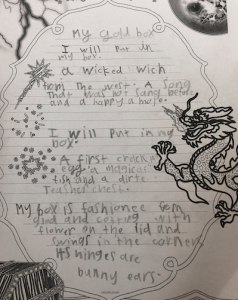 My gold box
I will put in
my box.
a wicked wich
from the west. A song
That was not sang before
and a happy a
I will put in my
box.
A first
egg a magicus
fish and a dirte
Teasher chest.
My box is fashionee fom
gold and with
flower on the lid and
swings in the corners
its hinges are
bunny ears.